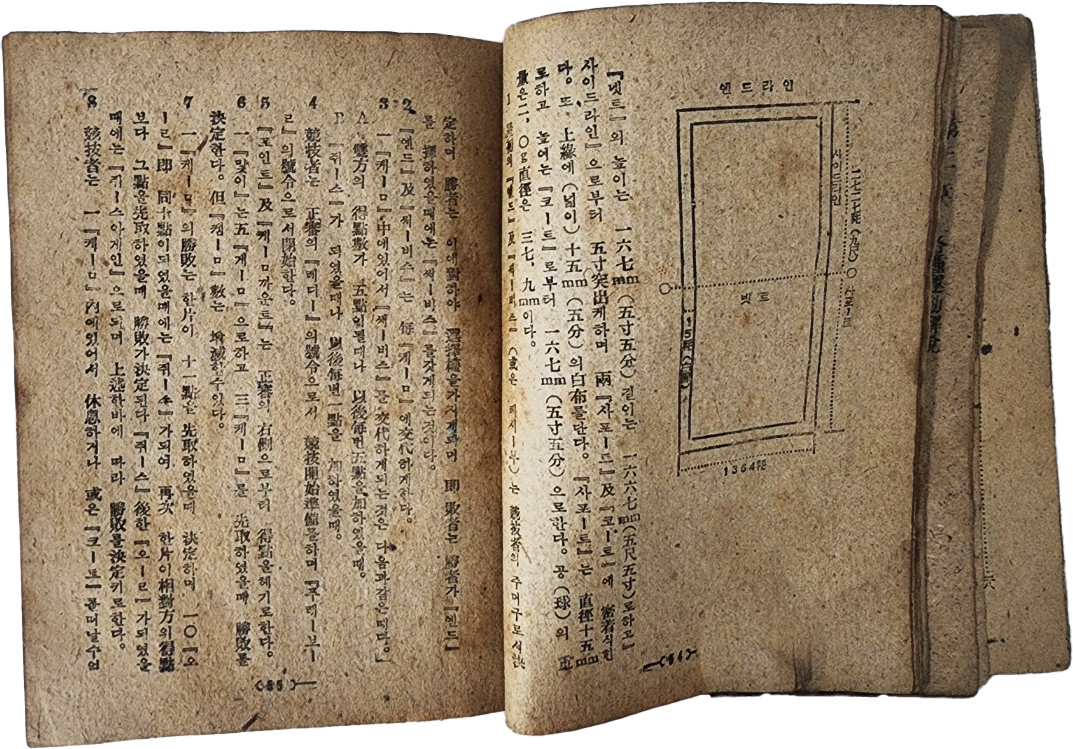 엔드라인
사이드라인
사포ー트
넷트
1364粍
『넷트』의 높이는 一六七㎜(五寸五分)길이는 一六六七㎜(五尺五寸)로하고』
사이드라인』으로부터 五寸突出케하며 兩『사포ー트』及『코ー트』에 密着식힌
다。또 上緣에(넓이)十五㎜(五分)의白布를단다。『사포ー트』는 直徑十五㎜
로하고 높이는『코ー트』로부터 一六七㎜(五寸五分)으로한다。공(球)의 重
量은二、○g直徑은 三七、九㎜이다。
1 最初의『엔드』及『써ー비스』(或은 레시ー브)는 競技者의 주먹구로서決
定하며 勝者는 이에對하야 選擇權을가지게되며 即 敗者는 勝者가『엔드』
를 擇하였을때에는『써ー비스』를갖게되는것이다。
2 『엔드』及『써ー비스』는 每『께ー므』에交代하게한다。
3 一『께ー므』中에있어서『써ー비스』를 交代하게되는것은 다음과같은때다。』
A 雙方의 得點數가 五點일때마다 以後每번五點을加하였을때。
B 『쥬ー스』가 되었을때나 以後每번一點을 加하였을때。
4 競技者는 正審의『레디ー』의號令으로서 競技開始準備를하며『푸레ー보ー
르』의號令으로서開始한다。
5 『포인트』及『께ー므까운트』는 正審의 右側으로부터 得點을헤기로한다。
6 一『맟이』는五『게ー므』으로하고 三『께ー므』를 先取하였을때 勝敗를
決定한다。但『껨ー므』數는 增減할수있다。
7 一『께ー므』의勝敗는 한片이 十一點을 先取하였을때 決定하며 一○『오
ー르』即 同十點이되였을때에는『쥬ー스』가되여 再次 한片이相對方의得點
보다 그點을先取하였을때 勝敗가決定된다『쥬ー스』後한『오ー르』가되였을
때에는『쥬ー스아게인』으로되며 上述한바에 따라 勝敗를決定키로한다。
8 競技者는 一『께ー므』內에있어서 休息하거나 或은『코ー트』를떠날수업